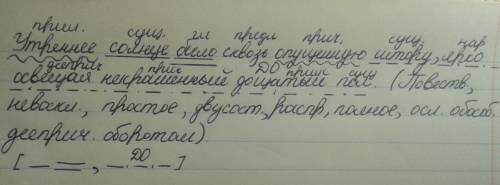 прил. сущ. гл предл прич. сущ. нар
Утреннее солнце било сквозь опущенную штору, ярко
дееприч прич ДО прил сущ
освещая некрашенный дощатый пол. (Повеств,
невоскл., простое, двусост, распр, полное, осл. обособ.
дееприч. оборотом).
[ — =, ДО ]